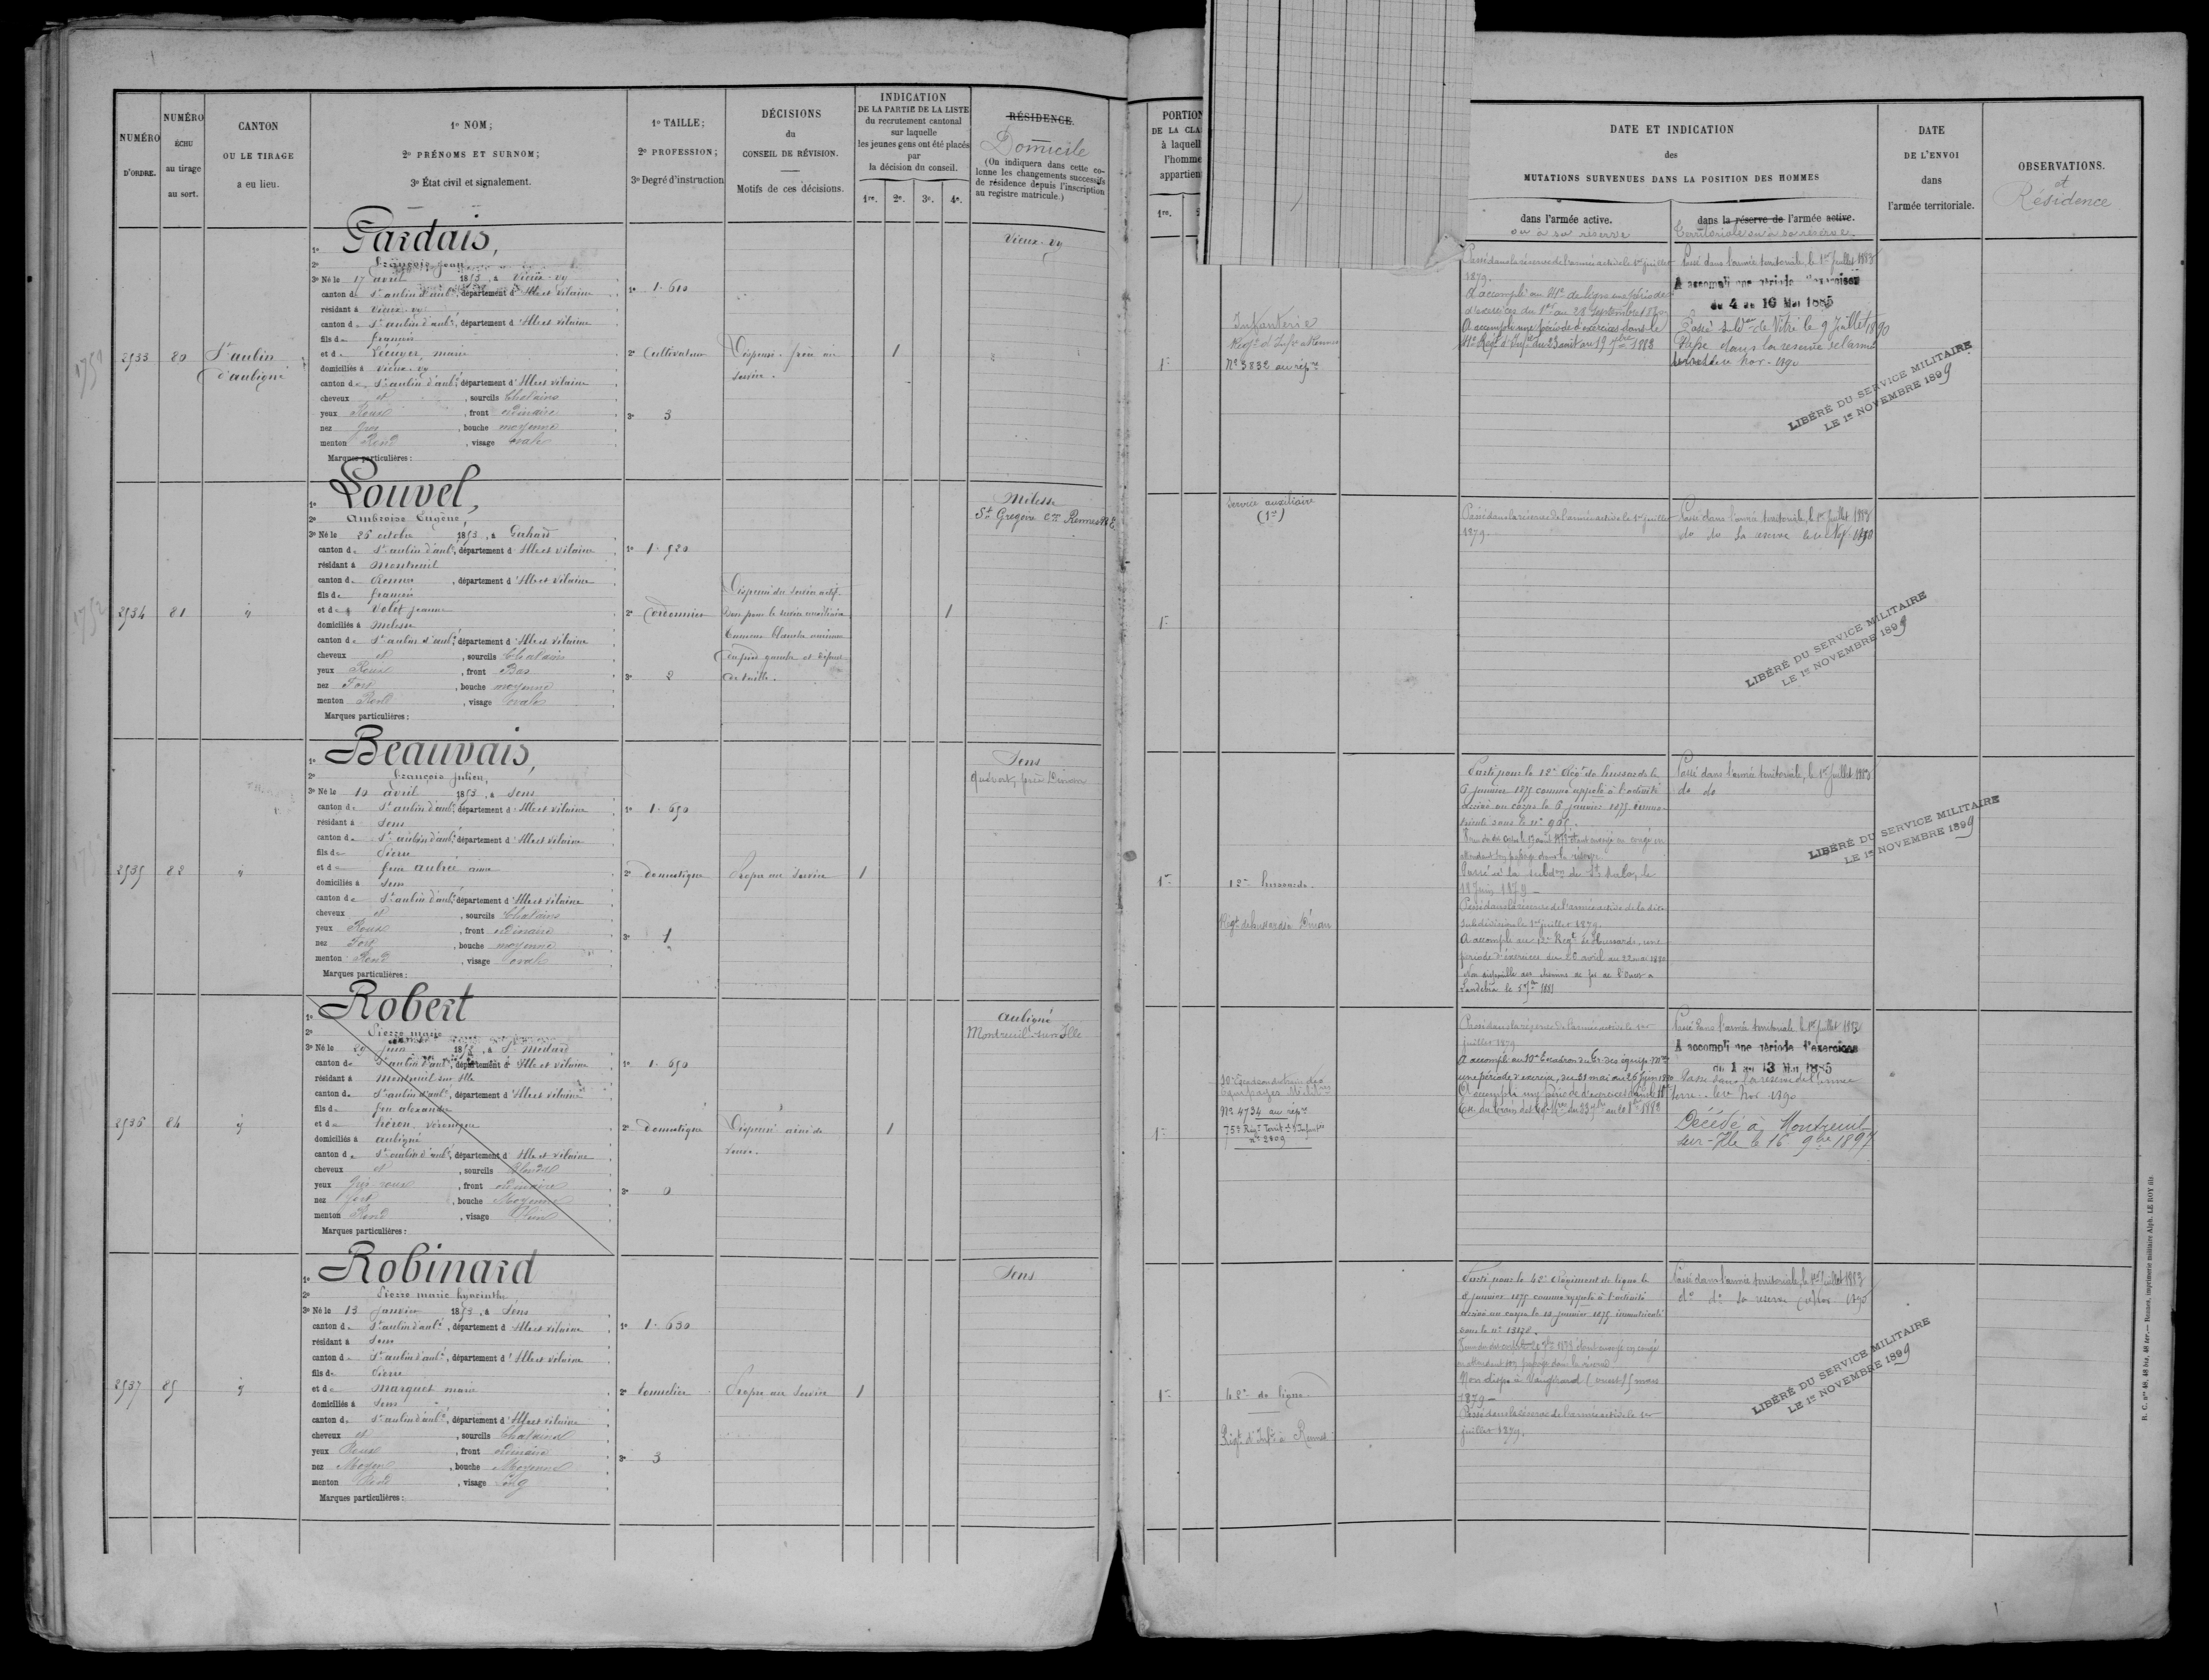 NUMÉRO
D'ORDRE.
NUMÉRO
ÉCHU
au tirage
au sort.
CANTON
OU LE TIRAGE
a eu lieu.
1º NOM;
2º PRÉNOMS ET SURNOM;
3º État civil et signalement.
1º TAILLE;
2º PROFESSION;
3º Degré d'instruction
DÉCISIONS
du
CONSEIL DE RÉVISION.
Motifs de ces décisions.
INDICATION
DE LA PARTIE DE LA LISTE
du recrutement cantonal
sur laquelle
les jeunes gens ont été placés
par
la décision du conseil.
1re. 2e. 3e. 4e.
RÉSIDENCE.
Domicile
(On indiquera dans cette co-
lonne les changements successifs
de résidence depuis l'inscription
au registre matricule.)
2533
80
St aubin
d'aubigné
1º Gardais,
2º François jean
3º Né le 17 avril 1853, à Vieux-vy
canton de St aubin d'aubé, département d'Ille et vilaine
résidant à Vieux-vy
canton de St aubin d'aubé, département d'Ille et vilaine
fils de francois
et de Lécuyer, marie
domiciliés à Vieux-vy
canton de St aubin d'aubé, département d'Ille et vilaine
cheveux et, sourcils Chatains
yeux Roux, front ordinaire
nez gros, bouche moyenne
menton Rond, visage ovale
Marques particulières :
1º 1.610
2º Cultivateur
3º 3
Dispensé. frère au
service.
1
Vieux-vy
2534
81
1º Louvel,
2º Ambroise Eugène,
3º Né le 26 octobre 1853, à Gahard
canton de St aubin d'aubé, département d'Ille et vilaine
résidant à Montreuil
canton de Rennes, département d'Ille et vilaine
fils de francois
et de Volet jeanne
domiciliés à Melesse
canton de St aubin d'aubé, département d'Ille et vilaine
cheveux et, sourcils Chatains
yeux Roux, front Bas
nez Fort, bouche moyenne
menton Rond, visage ovale
Marques particulières :
1º 1.520
2º Cordonnier
3º 2
Dispensé du service actif.
Bon pour le service auxiliaire
du pied gauche et défaut
de taille.
1
Melesse
St Gregoire Con Rennes
2535
82
1º Beauvais,
2º François julien,
3º Né le 10 avril 1853, à Sens
canton de St aubin d'aubé, département d'Ille et vilaine
résidant à Sens
canton de St aubin d'aubé, département d'Ille et vilaine
fils de Pierre
et de feue aubrée anne
domiciliés à Sens
canton de St aubin d'aubé, département d'Ille et vilaine
cheveux et, sourcils Chatains
yeux Roux, front ordinaire
nez Fort, bouche moyenne
menton Rond, visage ovale
Marques particulières :
1º 1.650
2º domestique
3º 1
Propre au Service
1
Sens
2536
84
1º Robert
2º Pierre marie
3º Né le 29 juin 1853, à St Médard
canton de St aubin d'aubé, département d'Ille et vilaine
résidant à Montreuil sur Ille
canton de St aubin d'aubé, département d'Ille et vilaine
fils de feu alexandre
et de héron, véronique
domiciliés à aubigné
canton de St aubin d'aubé, département d'Ille et vilaine
cheveux et, sourcils Blonds
yeux Gris roux, front ordinaire
nez fort, bouche Moyenne
menton Rond, visage Plein
Marques particulières :
1º 1.650
2º domestique
3º 0
Dispensé ainé de
veuve.
1
aubigné
Montreuil-sur-Ille
2537
85
1º Robinard
2º Pierre marie hyacinthe
3º Né le 13 janvier 1853, à Sens
canton de St aubin d'aubé, département d'Ille et vilaine
résidant à Sens
canton de St aubin d'aubé, département d'Ille et vilaine
fils de Pierre
et de Marquet marie
domiciliés à Sens
canton de St aubin d'aubé, département d'Ille et vilaine
cheveux et, sourcils Chatains
yeux Roux, front ordinaire
nez Moyen, bouche Moyenne
menton Rond, visage Long
Marques particulières :
1º 1.630
2º tonnelier
3º 3
Propre au Service
1
Sens
PORTION
DE LA CLA
à laquell
l'homme
appartien
1re.
DATE ET INDICATION
des
MUTATIONS SURVENUES DANS LA POSITION DES HOMMES
dans l'armée active.
ou à sa réserve
dans la réserve de l'armée active.
territoriale ou à sa réserve.
DATE
DE L'ENVOI
dans
l'armée territoriale.
OBSERVATIONS.
et
Résidence
Infanterie
Regt d'Infie à Rennes
Nº 3832 au répre
Passé dans la réserve de l'armée active le 1er juillet
1879.
A accompli au 41e de ligne une période
d'exercices du 1er au 28 Septembre 1880
A accompli une période d'exercices dans le
41e Régt d'Infie du 23 août au 19 7bre 1883
Passé dans l'armée territoriale, le 1er Juillet 1883
A accompli une période d'exercices
du 4 au 16 Mai 1885
Passé à la Son de Vitré le 9 Juillet 1890
Passé dans la réserve de l'armée
territle 1er Nov. 1890
LIBÉRÉ DU SERVICE MILITAIRE
LE 1er NOVEMBRE 1899
Service auxiliaire
(1re)
Passé dans la réserve de l'armée active le 1er juillet
1879.
Passé dans l'armée territoriale, le 1er Juillet 1883
do do la réserve le 1er Nov 1890
LIBÉRÉ DU SERVICE MILITAIRE
LE 1er NOVEMBRE 1899
12e hussards.
Regt de hussards à Dinan
Parti pour le 12e Régt de hussards le
6 janvier 1875 comme appelé à l'activité
arrivé au corps le 6 janvier 1875 imma-
triculé sous le nº
attendant son passage dans la réserve
Passé à la subdon de St Malo, le
18 Juin 1879 —
Passé dans la réserve de l'armée active de la dite
subdivision le 1er juillet 1879.
A accompli au 12e Regt de Hussards, une
période d'exercices du 26 avril au 22 mai 1880
Non disponible des chemins de fer de l'Ouest à
Passé dans l'armée territoriale, le 1er Juillet 1883
do do
LIBÉRÉ DU SERVICE MILITAIRE
LE 1er NOVEMBRE 1899
10e Escadron du train des
équipages Milit.res
Nº 4734 au répre
75e Regt Territ.al d'Infantie
nº 2809
Passé dans la réserve de l'armée active le 1er
juillet 1879
A accompli au 10e Escadron du Tr. des équip. Mres
une période d'exercices, du 31 mai au 26 juin 1880
A accompli une période d'exercices dans le 10e
Passé dans l'armée territoriale le 1er juillet 1883
A accompli une période d'exercices
du 1 au 13 Mai 1885
Passé dans la réserve de l'armée
terre. le 1er Nov. 1890
Décédé à Montreuil-
sur-Ille le 16 9bre 1897
42e de ligne
Régt d'Infie à Rennes
Parti pour le 42e Régiment de ligne le
janvier 1875 comme appelé à l'activité
arrivé au corps le 10 janvier 1875 immatriculé
sous le nº 13128.
en attendant son passage dans la réserve
Non dispo à Vaugirard (ouest) 5 mars
1879 —
Passé dans la réserve de l'armée active le 1er
juillet 1879.
Passé dans l'armée territoriale, le 1er Juillet 1883
do do la réserve 1er Nov 1890
LIBÉRÉ DU SERVICE MILITAIRE
LE 1er NOVEMBRE 1899
R. C. nos 48, 48 bis, 48 ter. — Rennes, imprimerie militaire Alph. LE ROY fils